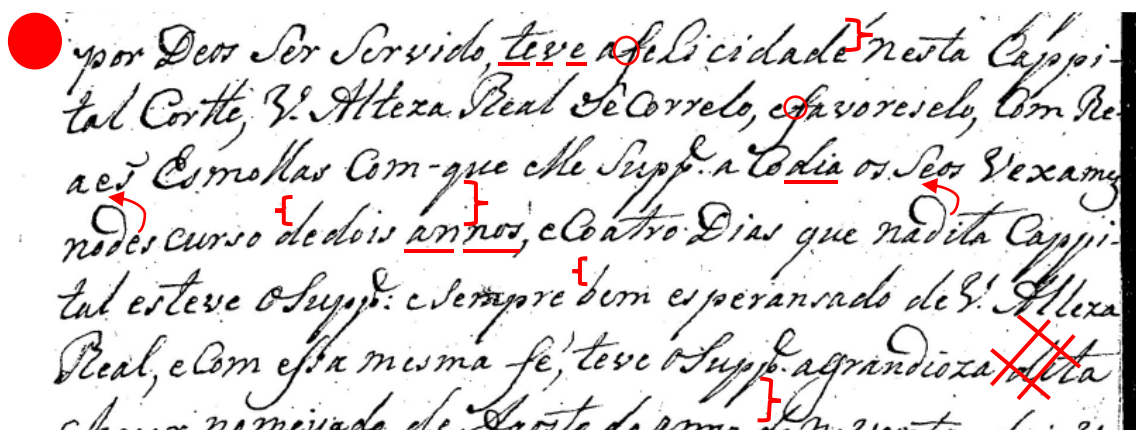 por Deos Ser Servido, teve a felicidade nesta Cappi-
tal Corte, V. Alteza Real Secorrelo, e favoreselo, Com Re-
aes Esmollas Com-que elle Supp.e acodia os Seos Vexames
nodescurso dedois annos, e Coatro Dias que nadita Cappi-
tal esteve oSupp.e: e sempre bem esperansado de V. Alteza
Real, e Com essa mesma fé, teve oSupp.e agrandioza dita
de Agosto do anno de